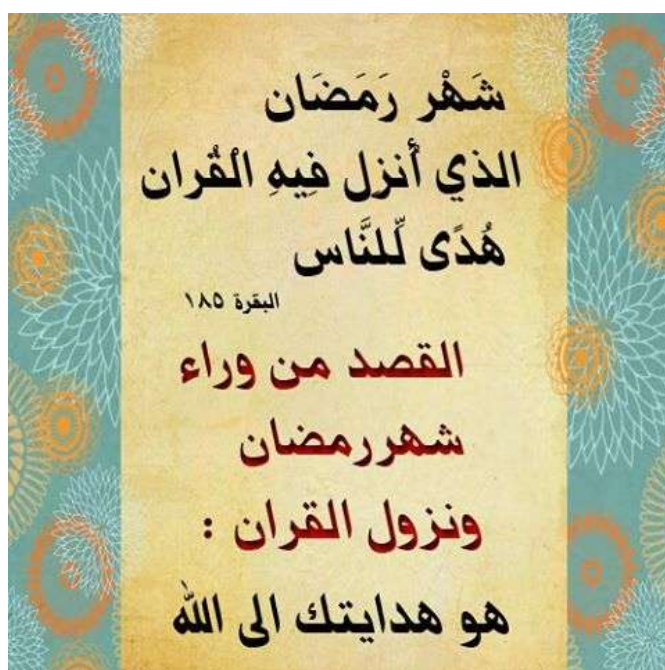 شَهْر رَمَضَان
الذي أُنزل فِيهِ الْقُران
هُدًى لِّلنَّاس
البقرة ١٨٥
القصد من وراء
شهررمضان
ونزول القران :
هو هدايتك الى الله